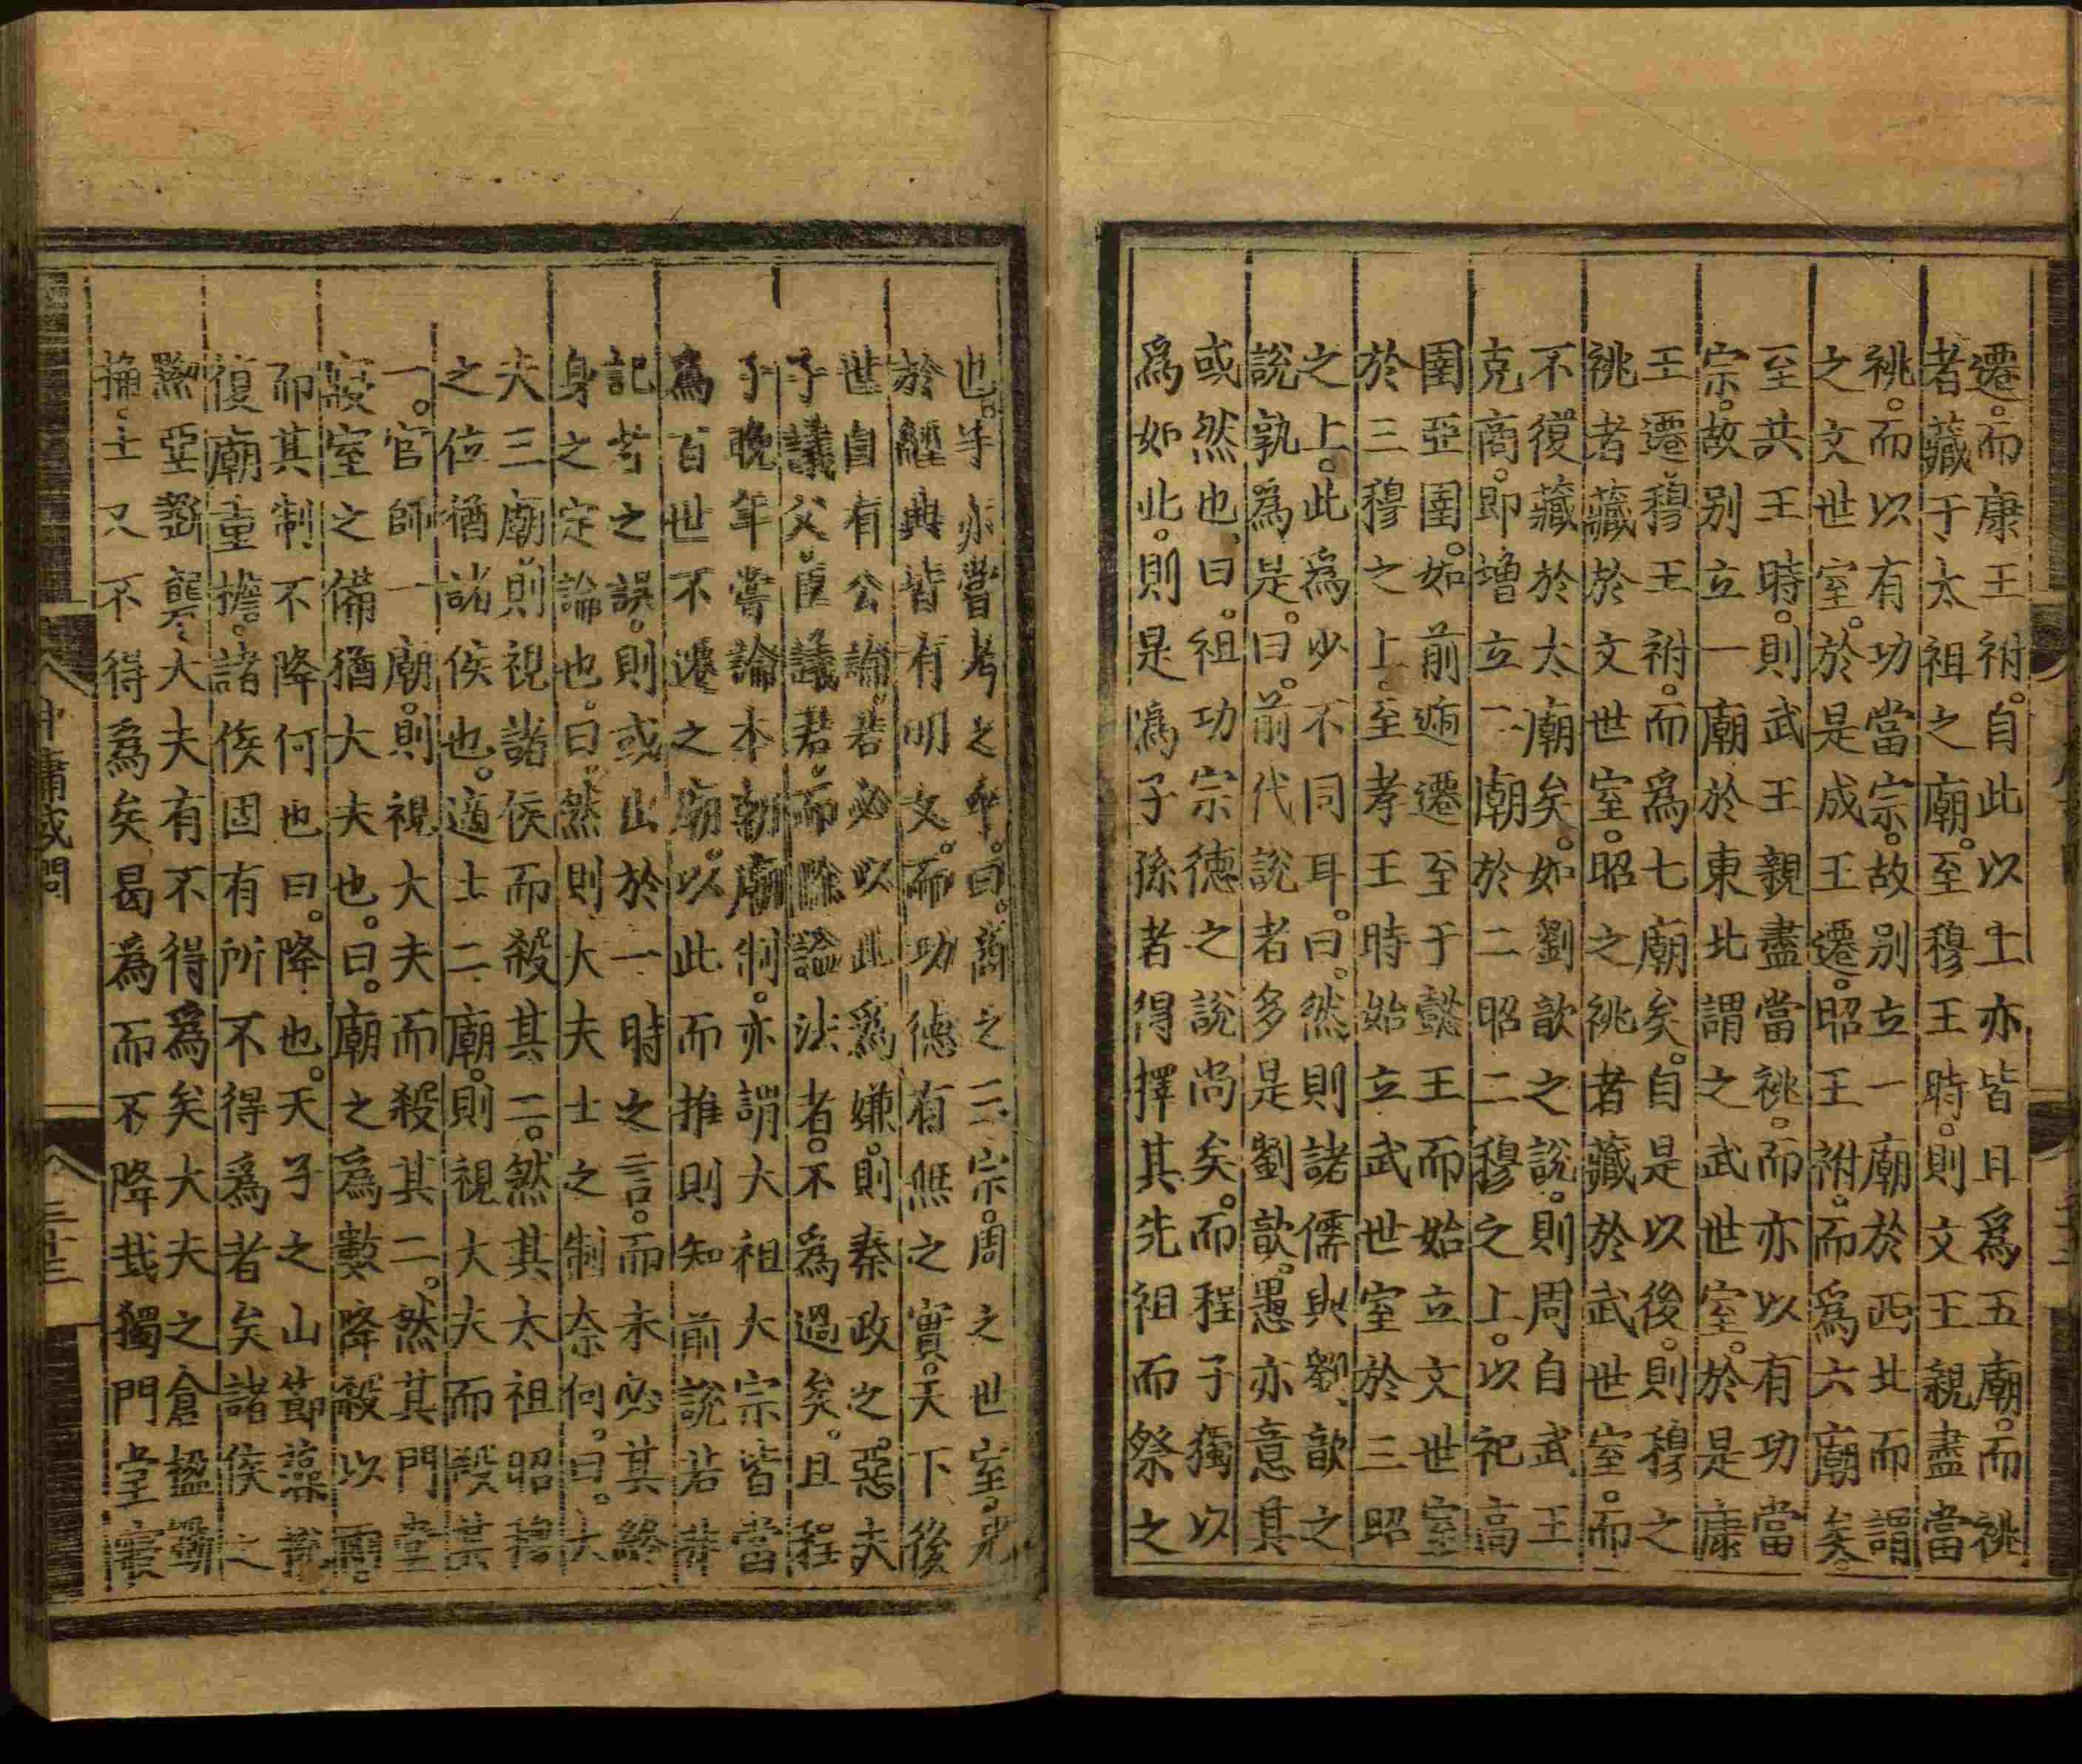 遷。而康王祔。自此以上亦皆且爲五廟。而祧
者藏于太祖之廟。至穆王時。則文王親盡當
祧。而以有功當宗。故别立一廟於西北而謂
之文世室。於是成王遷。昭王祔。而爲六廟矣。
至共王時。則武王親盡當祧。而亦以有功當
宗。故别立一廟於東北謂之武世室。於是康
王遷。穆王祔。而爲七廟矣。自是以後。則穆之
祧者藏於文世室。昭之祧者藏於武世室。而
不復藏於太廟矣。如劉歆之說。則周自武王
克商。即增立二廟於二昭二穆之上。以祀高
圉亞圉。如前遞遷至于懿王而始立文世室
於三穆之上。至孝王時始立武世室於三昭
之上。此爲少不同耳。曰。然則諸儒與劉歆之
說孰爲是。曰。前代說者多是劉歆。愚亦意其
或然也。曰。祖功宗德之說尚矣。而程子獨以
爲如此。則是爲子孫者得擇其先祖而祭之
也。子亦嘗考之乎。曰。商之三宗。周之世室。見
於經典皆有明文。而功德有無之實。天下後
世自有公論。若必以此爲嫌。則秦政之惡。夫
子議父。臣議君。而除諡法者。不爲過矣。且程
子晚年嘗論本朝廟制。亦謂大祖大宗皆當
爲百世不遷之廟。以此而推則知前說若非
記者之誤。則或出於一時之言。而未必其終
身之定論也。曰。然則大夫士之制奈何。曰。大
夫三廟。則視諸侯而殺其二。然其太祖昭穆
之位猶諸侯也。適士二廟。則視大夫而殺其
一。官師一廟。則視大夫而殺其二。然其門堂
寢室之備猶大夫也。曰。廟之爲數降殺以兩。
而其制不降何也。曰。降也。天子之山節藻梲
復廟重檐。諸侯固有所不得爲者矣諸侯之
黝堊斲礱大夫有不得爲矣大夫之倉楹斲
桷士又不得爲矣曷爲而不降哉獨門堂寢
中庸或問 三十三